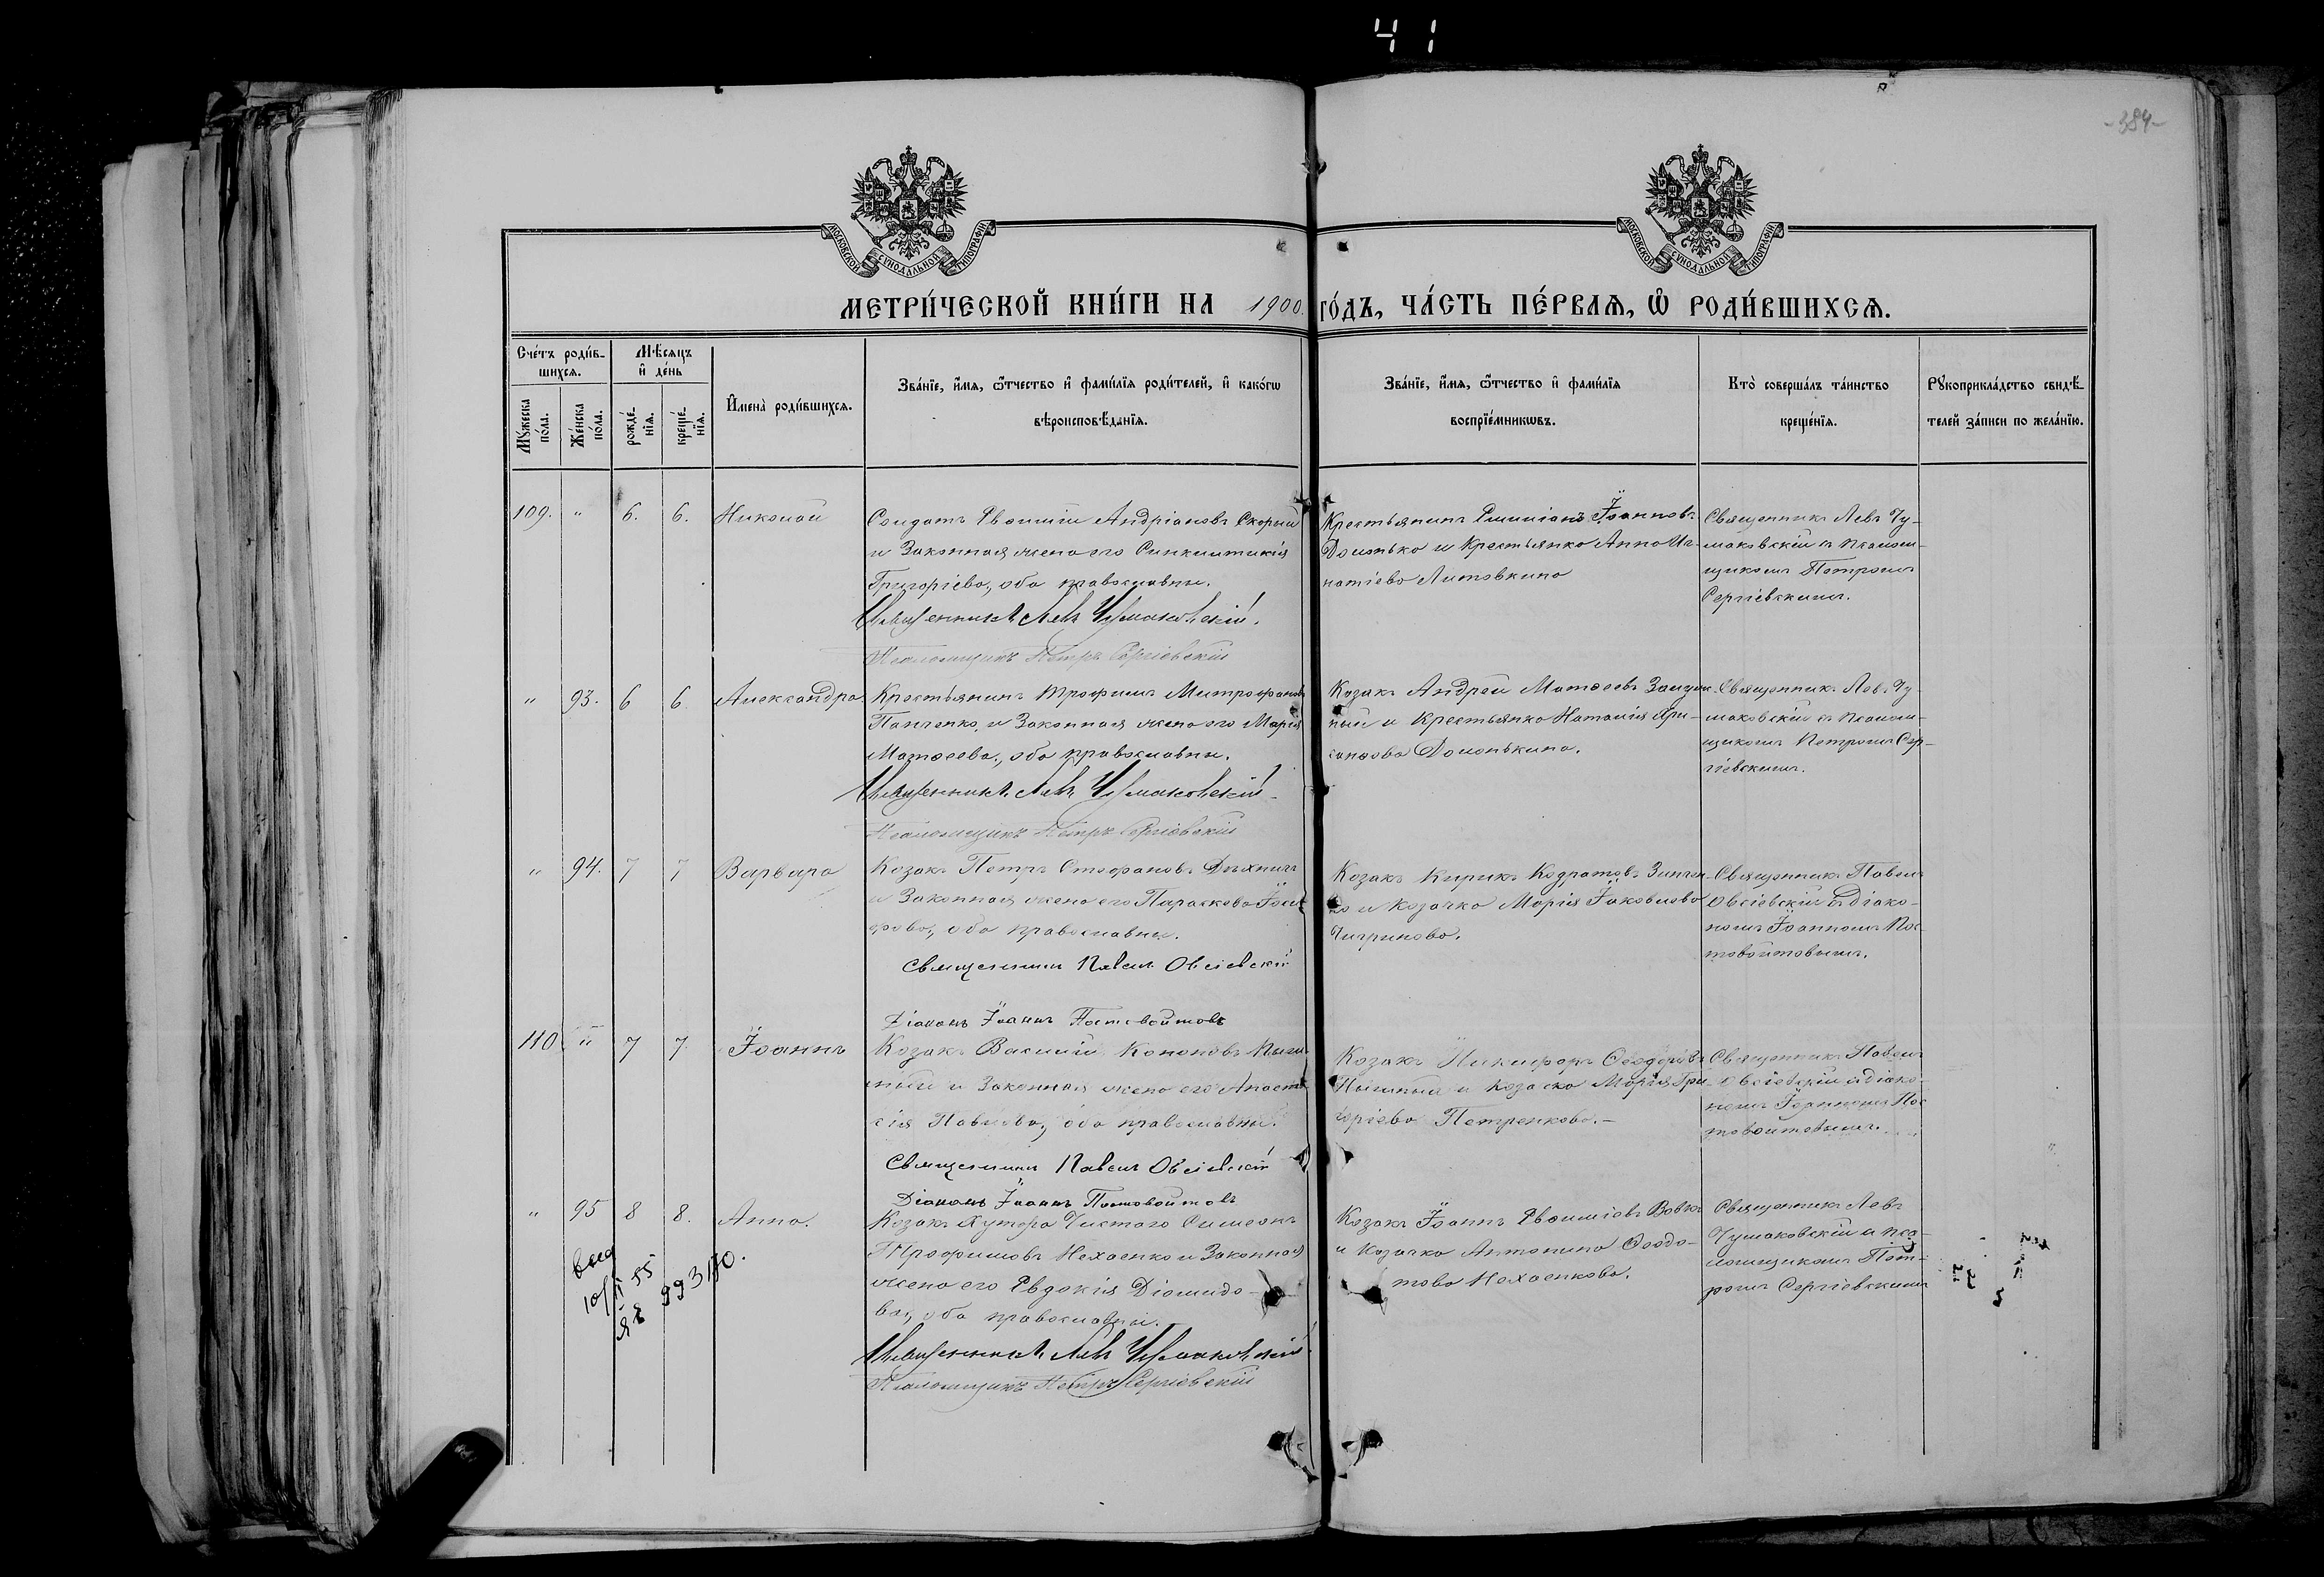 41
-384-
МОСКОВСКОЙ СѴНОДАЛЬНОЙ ТИПОГРАФІИ
МОСКОВСКОЙ СѴНОДАЛЬНОЙ ТИПОГРАФІИ
МЕТРИ́ЧЕСКОЙ КНИ́ГИ НА 1900. ГО́ДЪ, ЧА́СТЬ ПЕ́РВАЯ, Ѡ҆ РОДИ́ВШИХСЯ.
Сче́тъ роди́в-
шихся.
Мѣ́сяцъ
и҆ де́нь
Му́жеска
по́ла.
Же́нска
по́ла.
рожде́-
нїя.
креще́-
нїя.
И҆мена̀ роди́вшихся.
Зва́нїе, и҆́мя, ѻ҆́тчество и҆ фами́лїя роди́телей, и҆ како́гѡ
вѣроисповѣ́данїя.
Зва́нїе, и҆́мя, ѻ҆́тчество и҆ фами́лїя
воспрїе́мникѡвъ.
Кто̀ соверша́лъ та́инство
креще́нїя.
Рꙋкоприкла́дство свидѣ́-
телей за́писи по жела́нїю.
109. " 6. 6. Николай
Солдатъ Евѳимій Андріановъ Скорый
и Законная жена его Синклитикія
Григоріева, оба православны.
Священникъ Левъ Чумаковскій.
Псаломщикъ Петръ Сергіевскій
Крестьянинъ Емиліанъ Іоанновъ
Долонько и Крестьянка Анна Иг-
натіева Литовкина
Священникъ Левъ Чу-
маковскій съ псалом-
щикомъ Петромъ
Сергіевскимъ.
" 93. 6 6. Александра
Крестьянинъ Трофимъ Митрофановъ
Панченко, и Законная жена его Марія
Матѳеева, оба православны.
Священникъ Левъ Чумаковскій
Псаломщикъ Петръ Сергіевскій
Козакъ Андрей Матѳеевъ
и Крестьянка Наталія Хри-
санѳова Долонькина.
Священникъ Левъ Чу-
маковскій съ псалом-
щикомъ Петромъ Сер-
гіевскимъ.
" 94. 7 7 Варвара
Козакъ Петръ Стефановъ
и Законная жена его Параскева Іоси-
фова, оба православны.
Священникъ Павелъ Овсіевскій
Діаконъ Іоаннъ Постовойтовъ
Козакъ Кирикъ Кодратовъ Зинчен-
ко и Козачка Марія Іаковлева
Чигринова.
Священникъ Павелъ
Овсіевскій съ діако-
номъ Іоанномъ Пос-
товойтовымъ.
110 " 7 7. Іоаннъ
Козакъ Василій Кононовъ Пыш-
ный и Законная жена его Анаста-
сія Павлова, оба православны.
Священникъ Павелъ Овсіевскій
Діаконъ Іоаннъ Постовойтовъ
Козакъ Никифоръ Ѳеодоровъ
Пышный и Козачка Марія Гри-
горіева Петренкова.-
Священникъ Павелъ
Овсіевскій съ діако-
номъ Іоанномъ Пос-
товойтовымъ.
" 95 8 8. Анна.
Козакъ Хутора Чистаго Симеонъ
Трофимовъ Нехаенко и Законная
жена его Евдокія Діомидо-
ва, оба православны.
Священникъ Левъ Чумаковскій
Псаломщикъ Петръ Сергіевскій
Козакъ Іоаннъ Евѳиміевъ Вовкъ
и Козачка Антонина Ѳеодо-
това Нехаенкова.
Священникъ Левъ
Чумаковскій и пса-
ломщикомъ Пет-
ромъ Сергіевскимъ
10/II 55